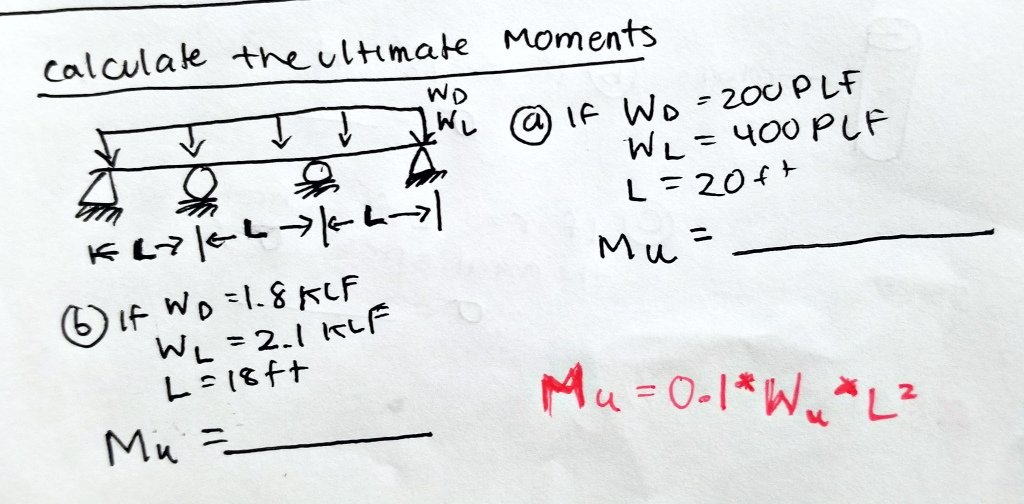 calculate the ultimate Moments
WD
WL
K L → | ← L → | ← L → |
ⓐ IF WD = 200 PLF
WL = 400 PLF
L = 20 ft
Mu = ________
ⓑ If WD = 1.8 KLF
WL = 2.1 KLF
L = 18 ft
Mu = ________
Mu = 0.1*Wu*L²